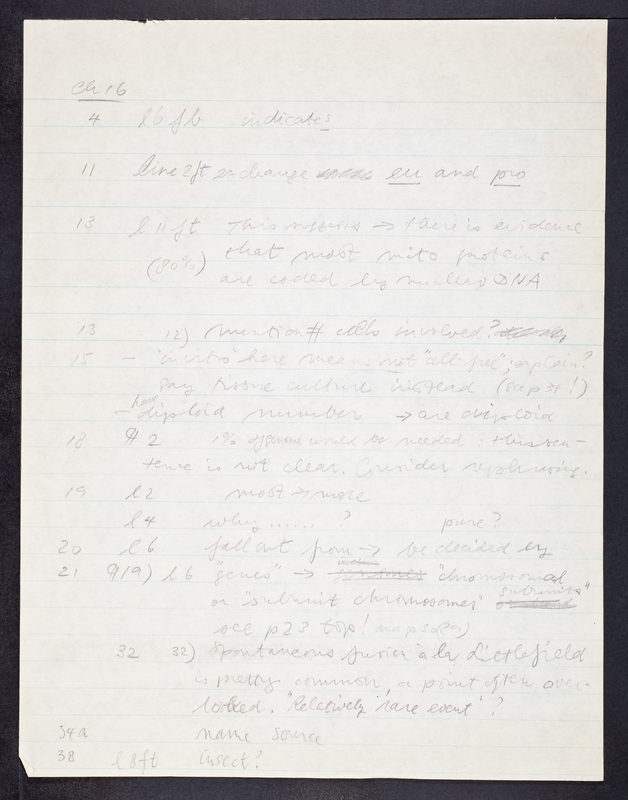 Ch 16
4 l 6 fb indicates
11 line 2 ft exchange eu and pro
13 l 11 ft This suggests → there is evidence
(80%) that most mito proteins
are coded by nucleus DNA
13 12) mention # cells involved?
15 – 'in vitro' here means not "cell free"; explain?
say tissue culture instead (see p 34!)
– had diploid number → are diploid
18 ¶ 2 1% of genome would be needed: this sen-
tence is not clear. Consider rephrasing.
19 l 2 most → more
l 4 why ...... ? pure?
20 l 6 fall out from → be decided by
21 19) l 6 "genes" → "chromosomal subunits"
or "subunit chromosomes"
see p 23 top!
32 32) Spontaneous fusion à la Littlefield
is pretty common, a point often over-
looked. "Relatively rare event"?
34a name source
38 l 8 ft insect?